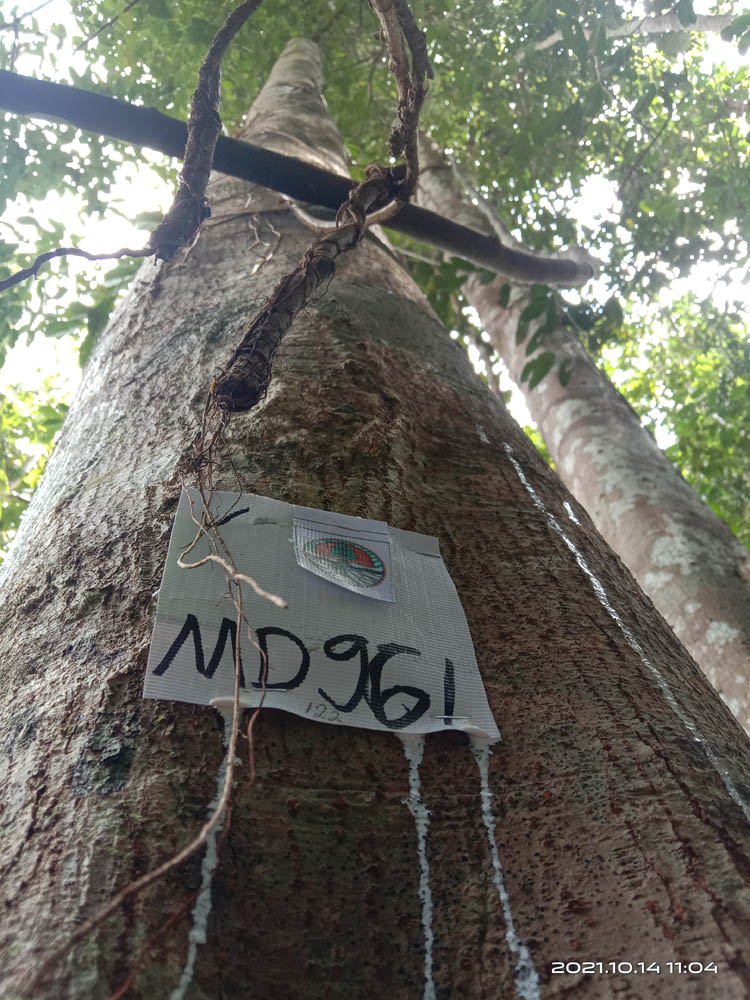 MD961
122
2021.10.14 11:04